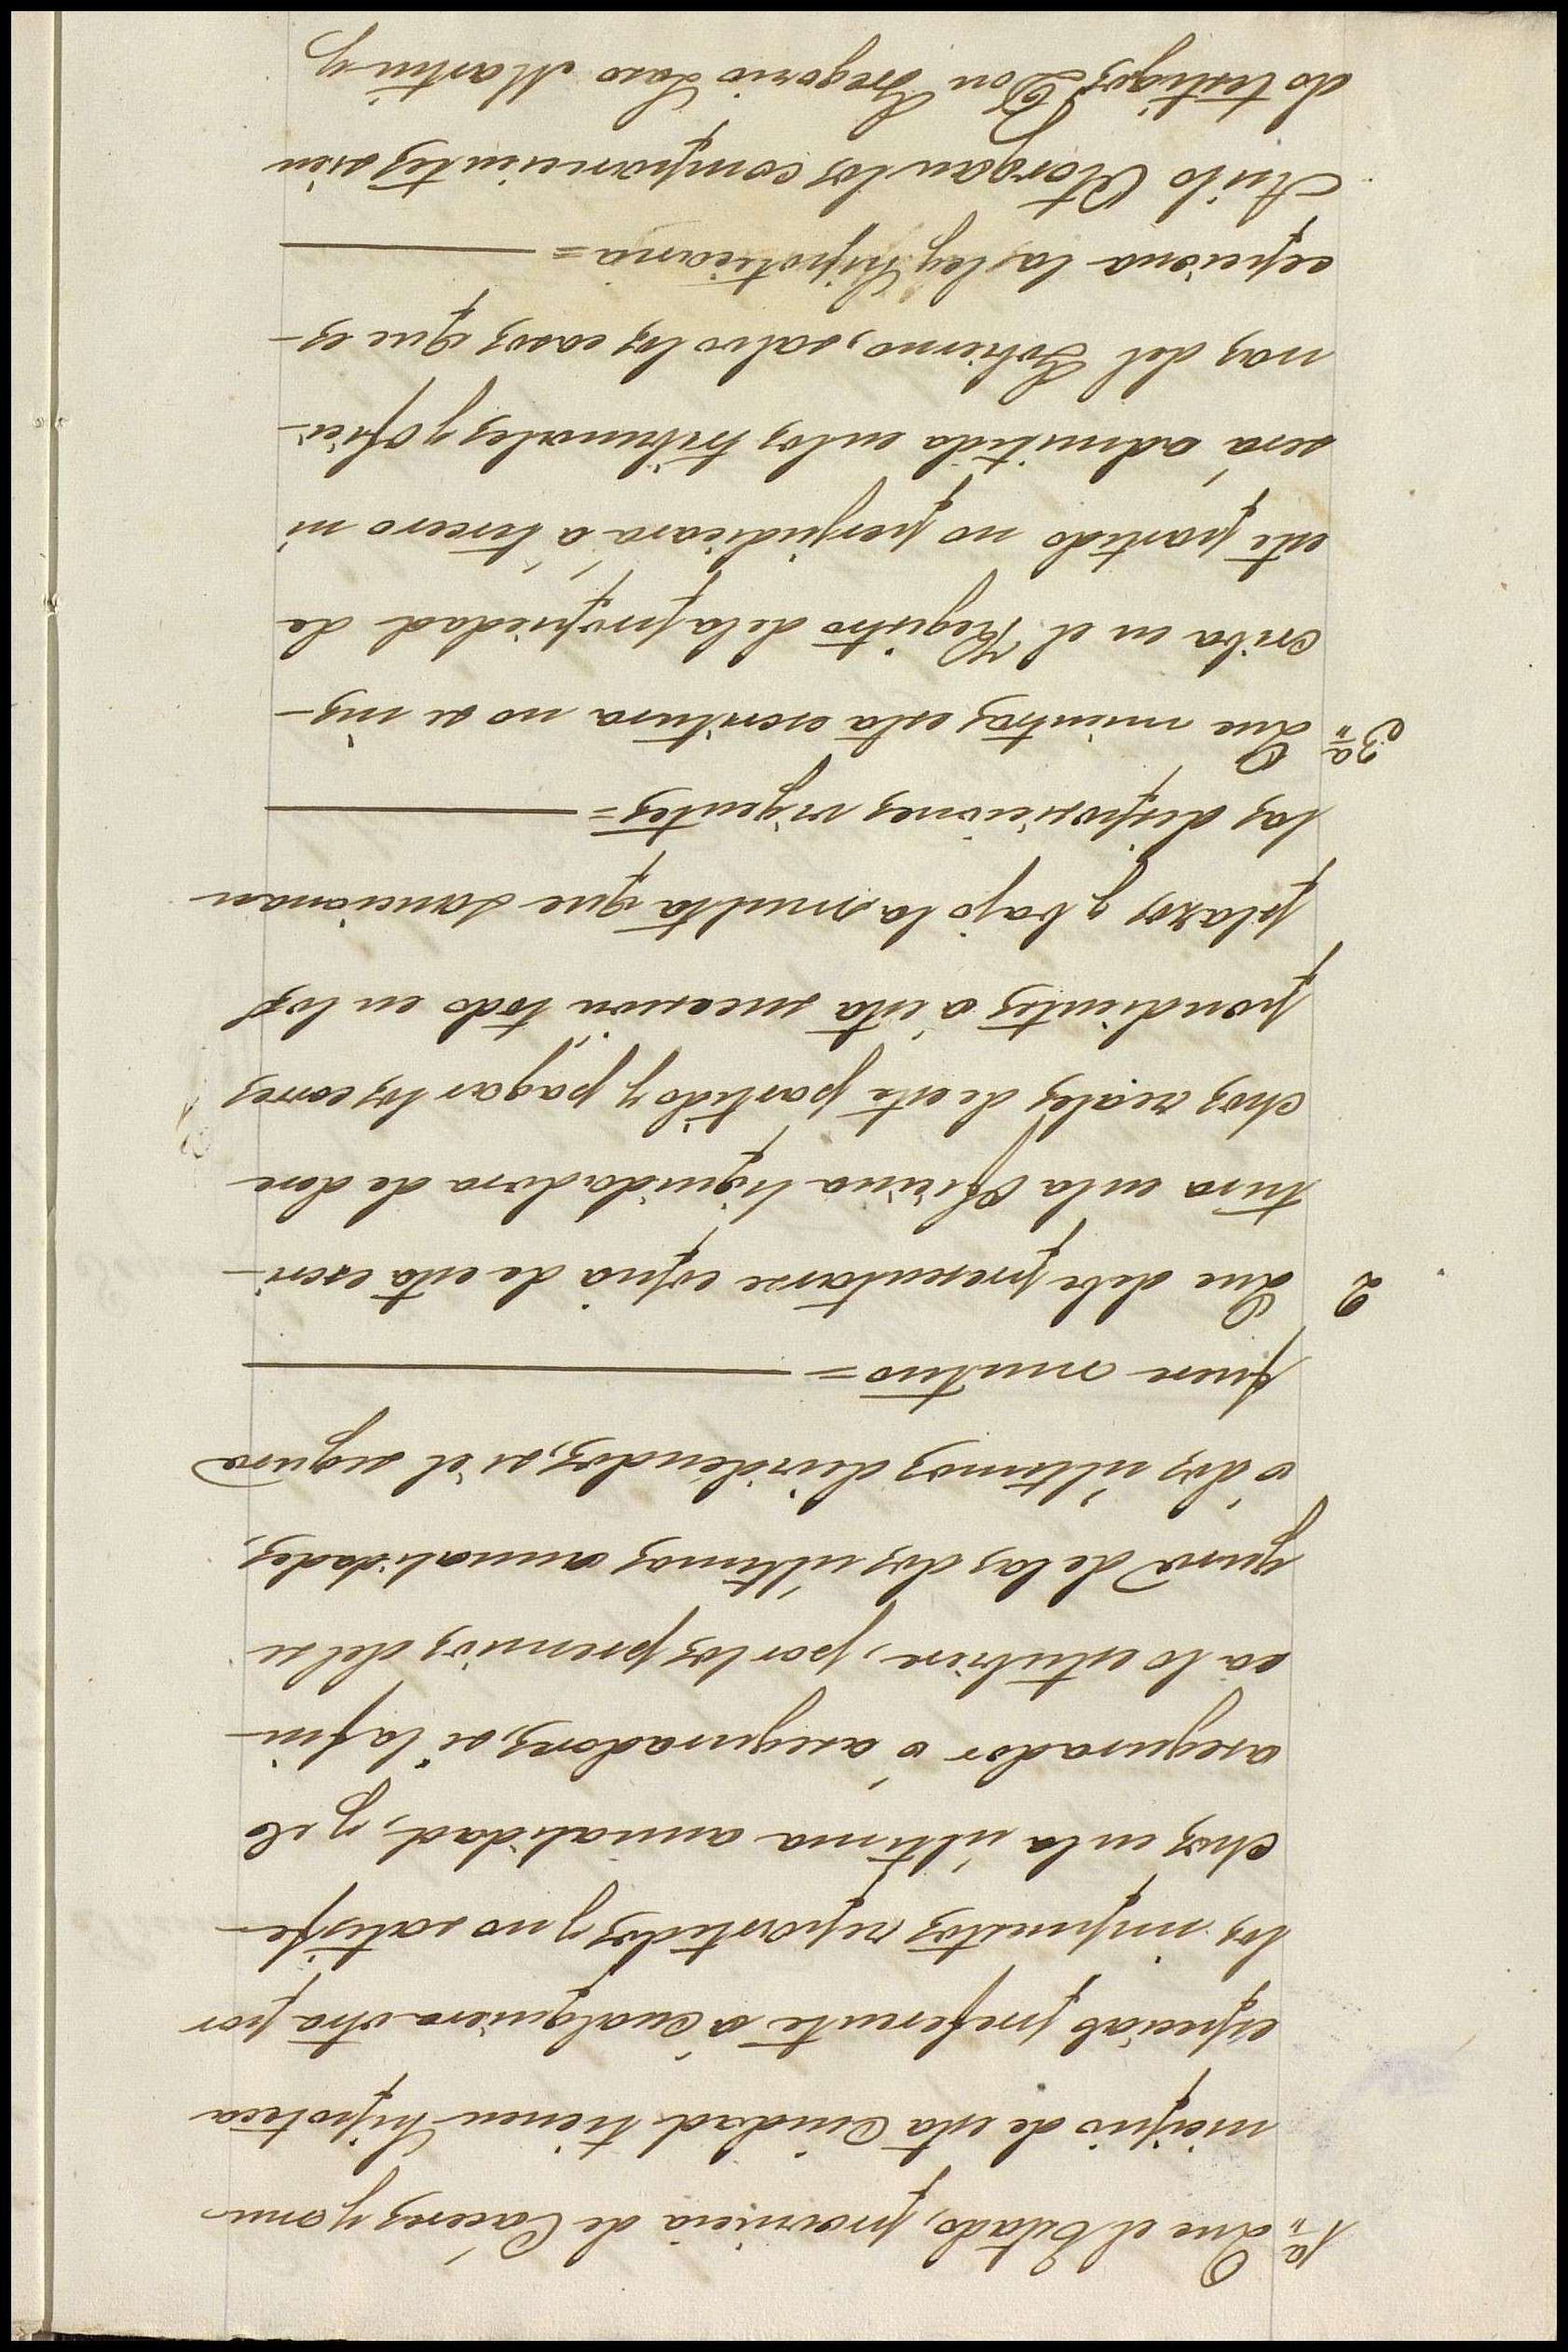 1ª Que el Estado, provincia de Cáceres y mu-
nicipio de esta Ciudad tienen hipoteca
especial preferente á cualquiera otra por
los impuestos repartidos y no satisfe-
chos en la última anualidad, y el
asegurador ó aseguradores, si la fin-
ca lo estubiere, por los premios del se
guro de las dos últimas anualidades,
ó dos últimos dividendos, si el seguro
fuere mutuo =
2 Que debe presentarse copia de esta escri-
tura en la Oficina liquidadora de dere
chos reales de este partido y pagar los corres
pondientes á esta sucesion, todo en los
plazos y bajo la multa que sancionan
las disposiciones vigentes =
3ª Que mientras esta escritura no se ins-
criba en el Registro de la propiedad de
este partido no perjudicará á tercero ni
será admitida en los tribunales y ofici-
nas del Gobierno, salvo los casos que es-
cepciona la ley hipotecaria =
Asi lo Otorgan los comparecientes sien
do testigos Don Gregorio Laso Martin y